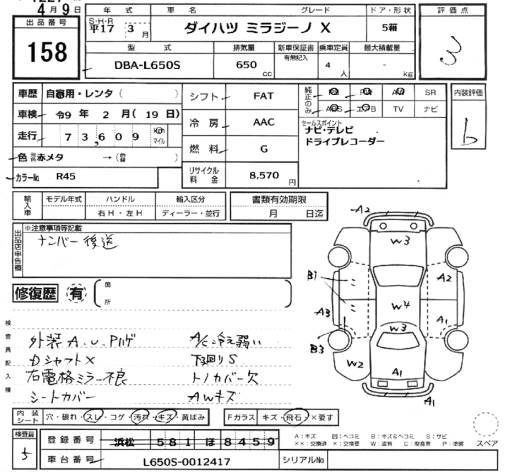 4月9日
出品番号
158
年式 車名 グレード ドア・形状
S・H・R
平17 3月 ダイハツ ミラジーノ X 5箱
型式 排気量 新車保証書 乗車定員 最大積載量
有無記入
DBA-L650S 650cc 4人 - kg
評価点
3
車歴 自家用・レンタ( )
車検 令9年 2月(19日)
走行 73,609 km マイル
色 赤メタ →( )
カラーNo R45
シフト FAT
冷房 AAC
燃料 G
リサイクル料金 8,570円
純正のみ SR
TV ナビ
セールスポイント
ナビ・テレビ
ドライブレコーダー
内装評価
b
輸入車 モデル年式 ハンドル 輸入区分
右H・左H ディーラー・並行
書類有効期限
月 日迄
出品店申告欄
※注意事項等記載
ナンバー後送
修復歴 有 箇所
検査員記入欄
外装A.U.Pハゲ
Dシャフト×
右電格ミラー不良
シートカバー
A/C冷え弱い
下廻りS
トノカバー欠
AWキズ
A2
W3
B1
A2
A3
W4
W3
A1
B3
W2
A1
A1
内装シート 穴・破れ・スレ・コゲ・汚れ・キズ・黄ばみ
Fガラス キズ・飛石・×要す
検査員
5
登録番号 浜松 581 ほ 8459
車台番号 L650S-0012417
シリアルNo
スペア